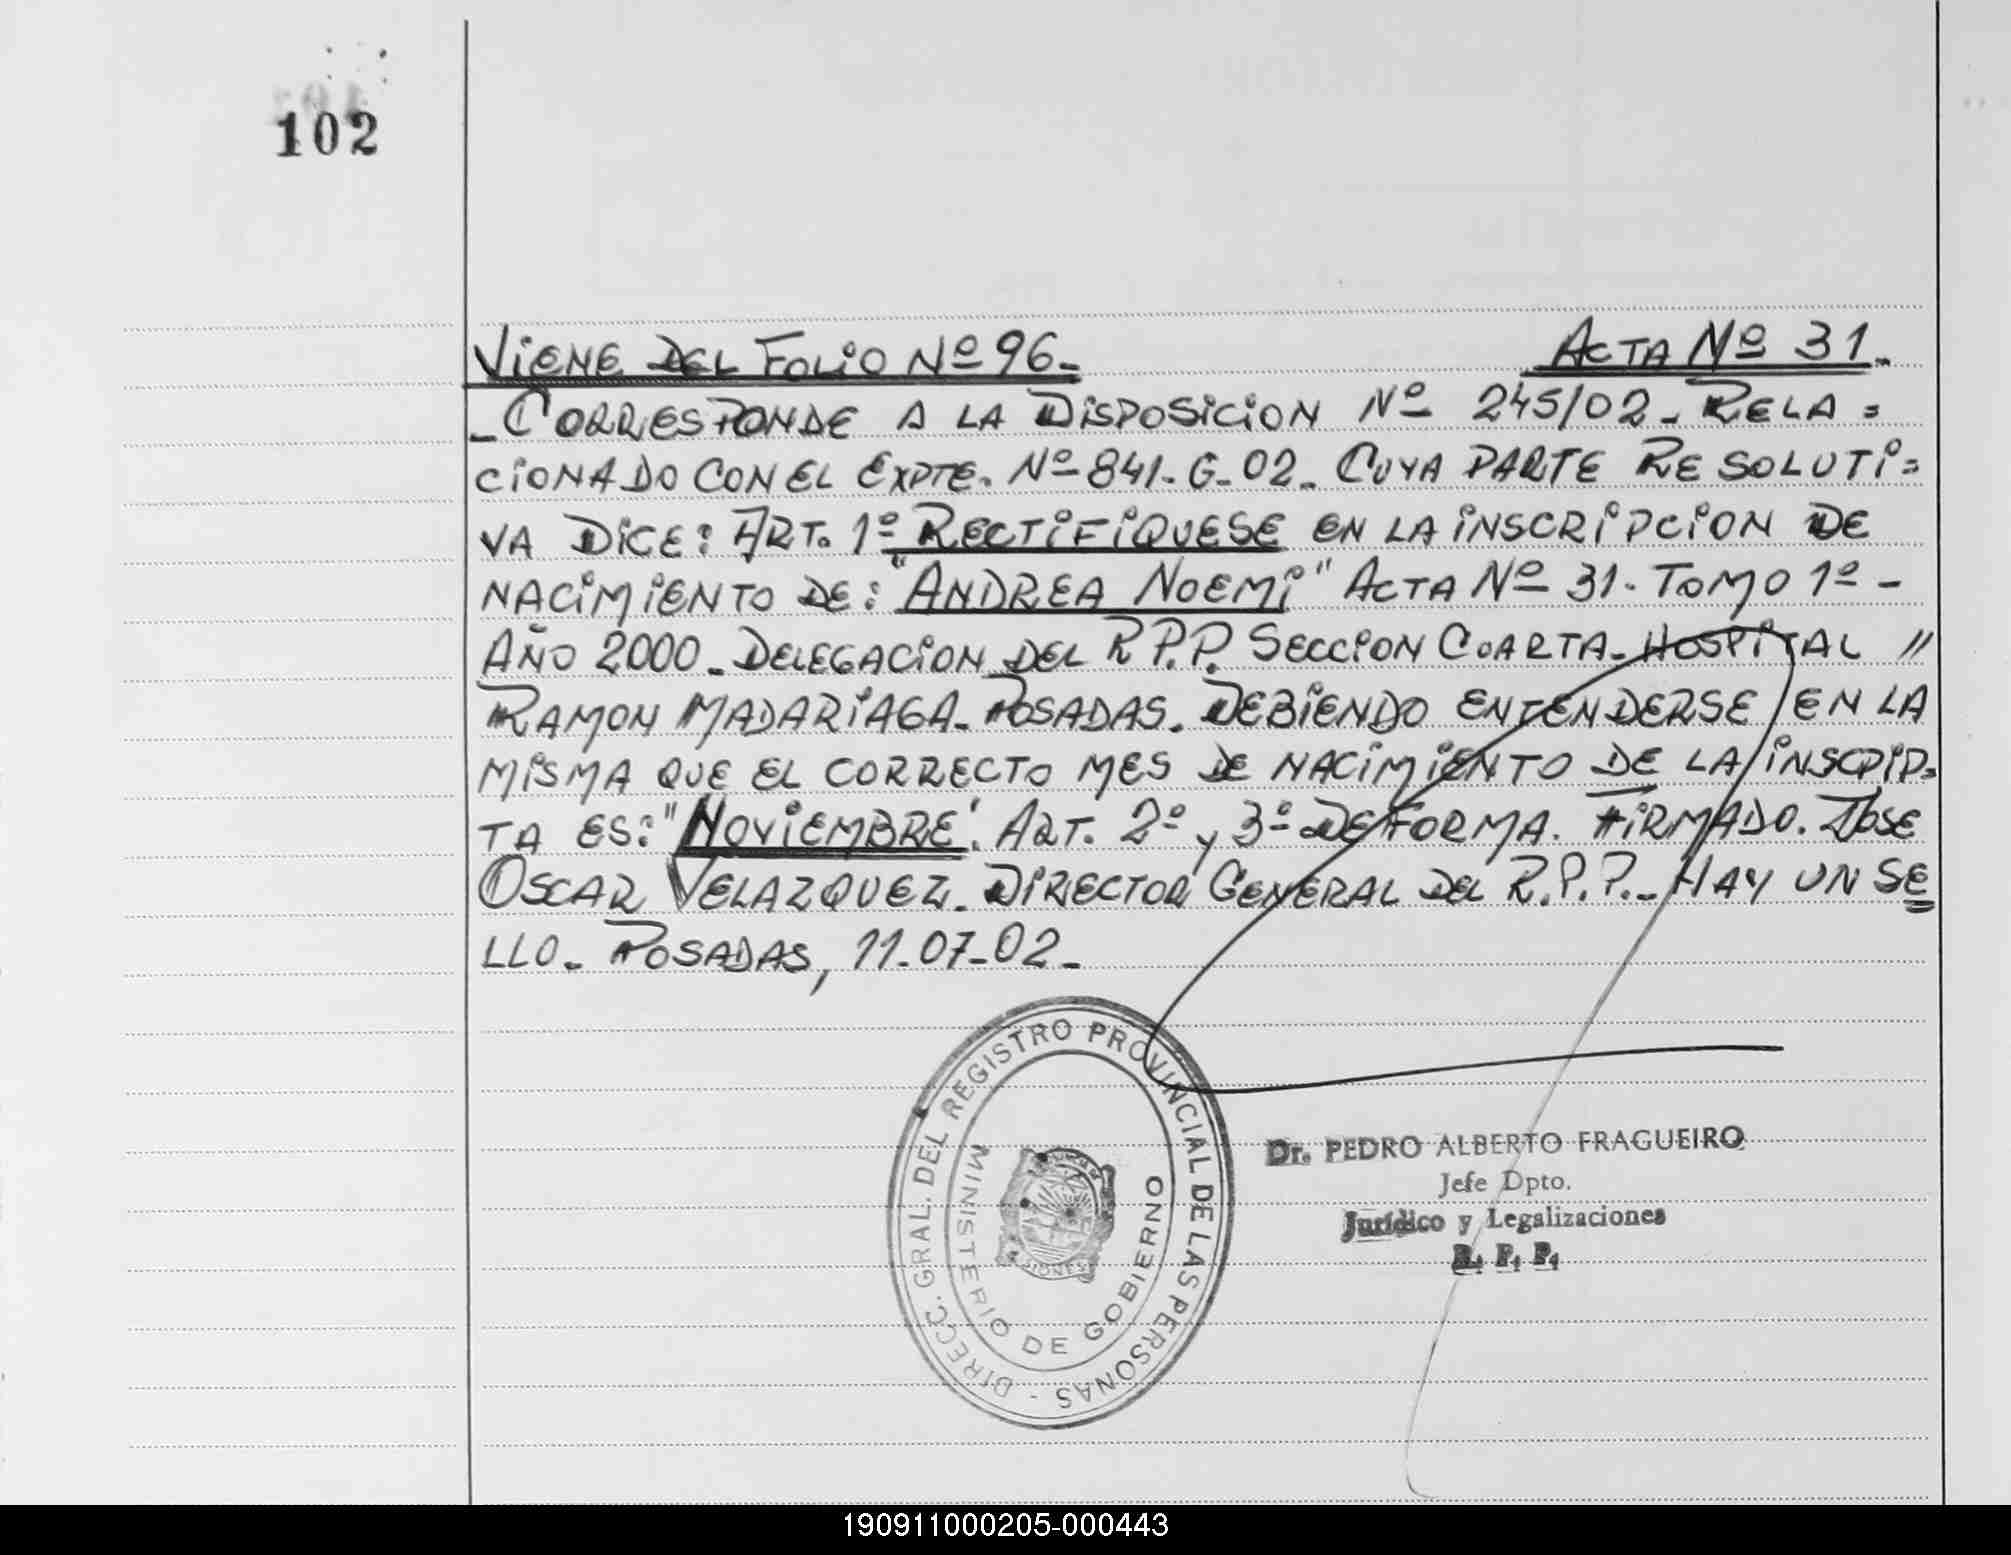 102
VIENE DEL FOLIO Nº 96_
ACTA Nº 31_
_CORRESPONDE A LA DISPOSICION Nº 245/02_ RELA=
CIONADO CON EL EXPTE. Nº 841. G_02_ CUYA PARTE RESOLUTI=
VA DICE: ART. 1º RECTIFIQUESE EN LA INSCRIPCION DE
NACIMIENTO DE: "ANDREA NOEMI" ACTA Nº 31. TOMO 1º_
AÑO 2000_ DELEGACION DEL R.P.P. SECCION CUARTA_ HOSPITAL "
RAMON MADARIAGA_ POSADAS. DEBIENDO ENTENDERSE EN LA
MISMA QUE EL CORRECTO MES DE NACIMIENTO DE LA INSCRIP=
TA ES: "NOVIEMBRE". ART. 2º y 3º DE FORMA. FIRMADO. JOSE
OSCAR VELAZQUEZ_ DIRECTOR GENERAL DEL R.P.P._ HAY UN SE
LLO_ POSADAS, 11_07_02_
DIRECC. GRAL. DEL REGISTRO PROVINCIAL DE LAS PERSONAS -
MINISTERIO DE GOBIERNO
Dr. PEDRO ALBERTO FRAGUEIRO
Jefe Dpto.
Jurídico y Legalizaciones
R. P. P.
190911000205-000443